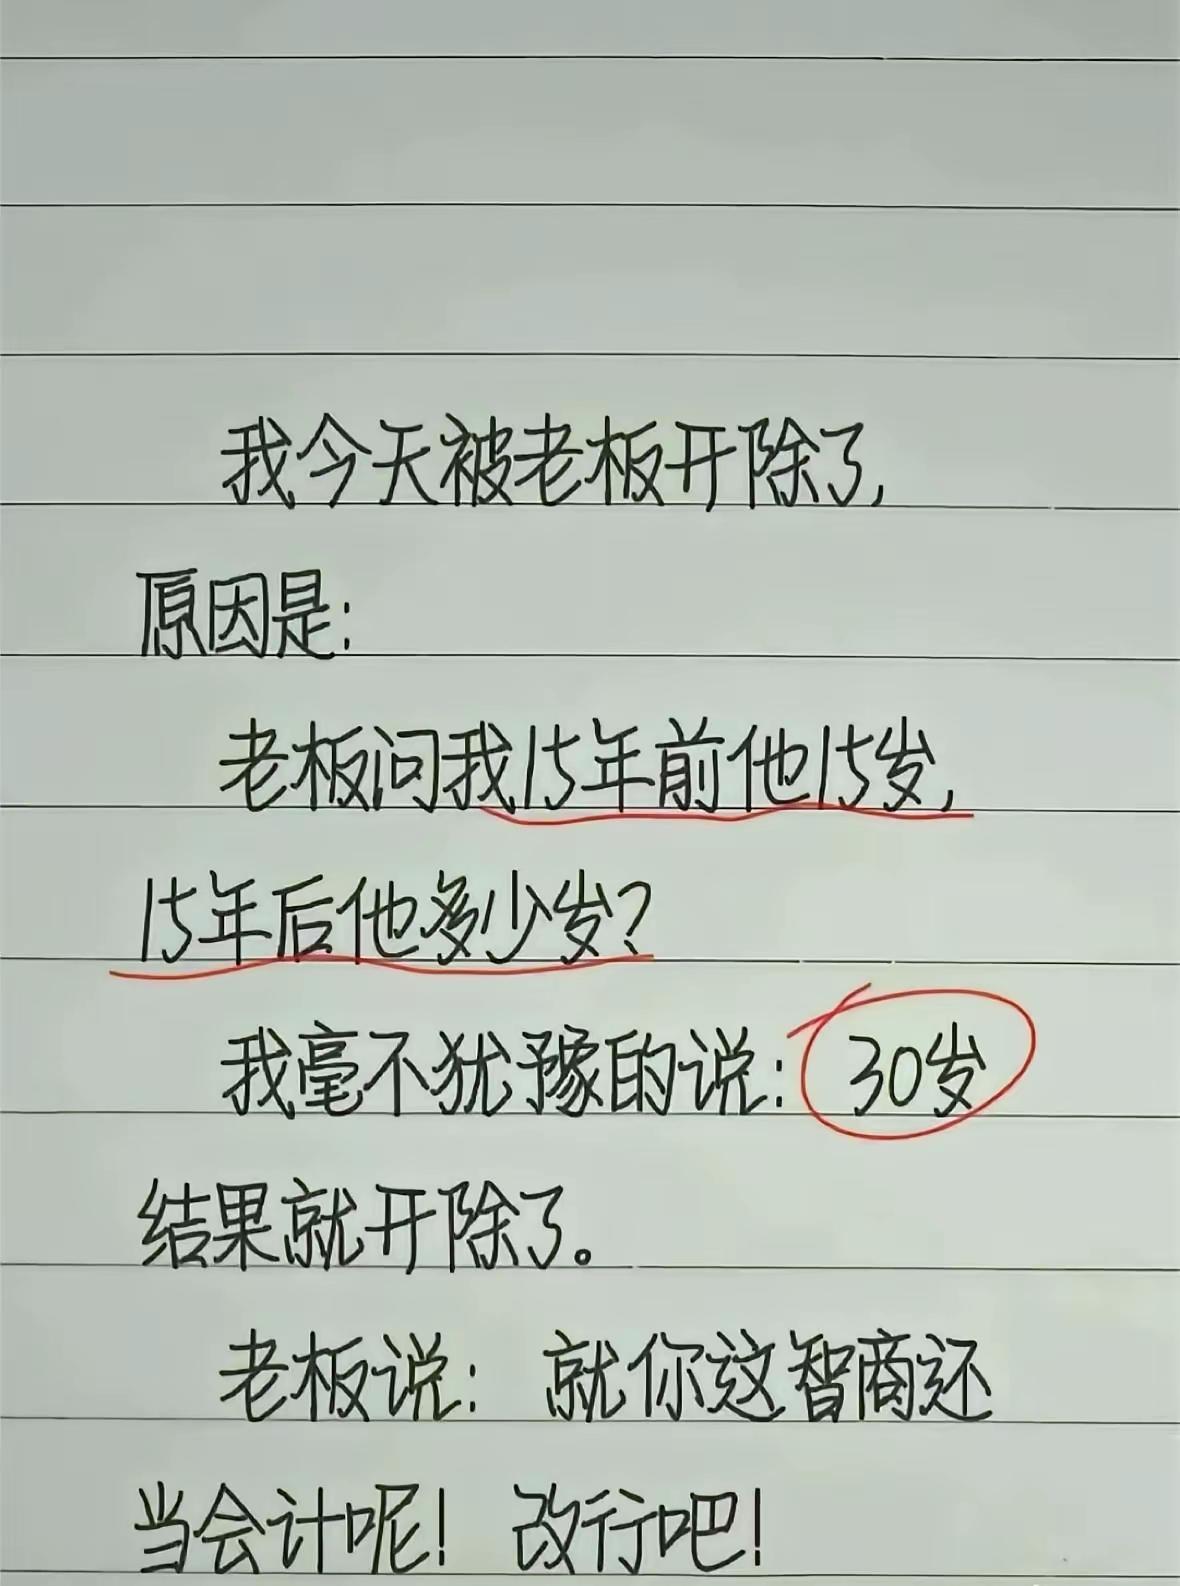 我今天被老板开除了,
原因是:
老板问我15年前他15岁,
15年后他多少岁?
我毫不犹豫的说: 30岁
结果就开除了。
老板说: 就你这智商还
当会计呢! 改行吧!